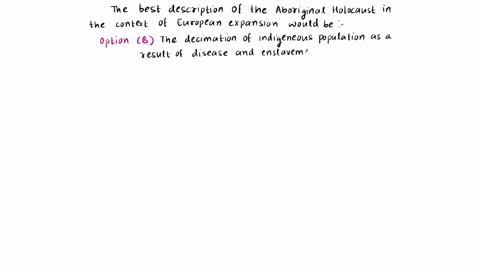 The best description of the Aboriginal Holocaust in
the context of European expansion would be :-
Option (B) The decimation of indigeneous population as a
result of disease and enslavem